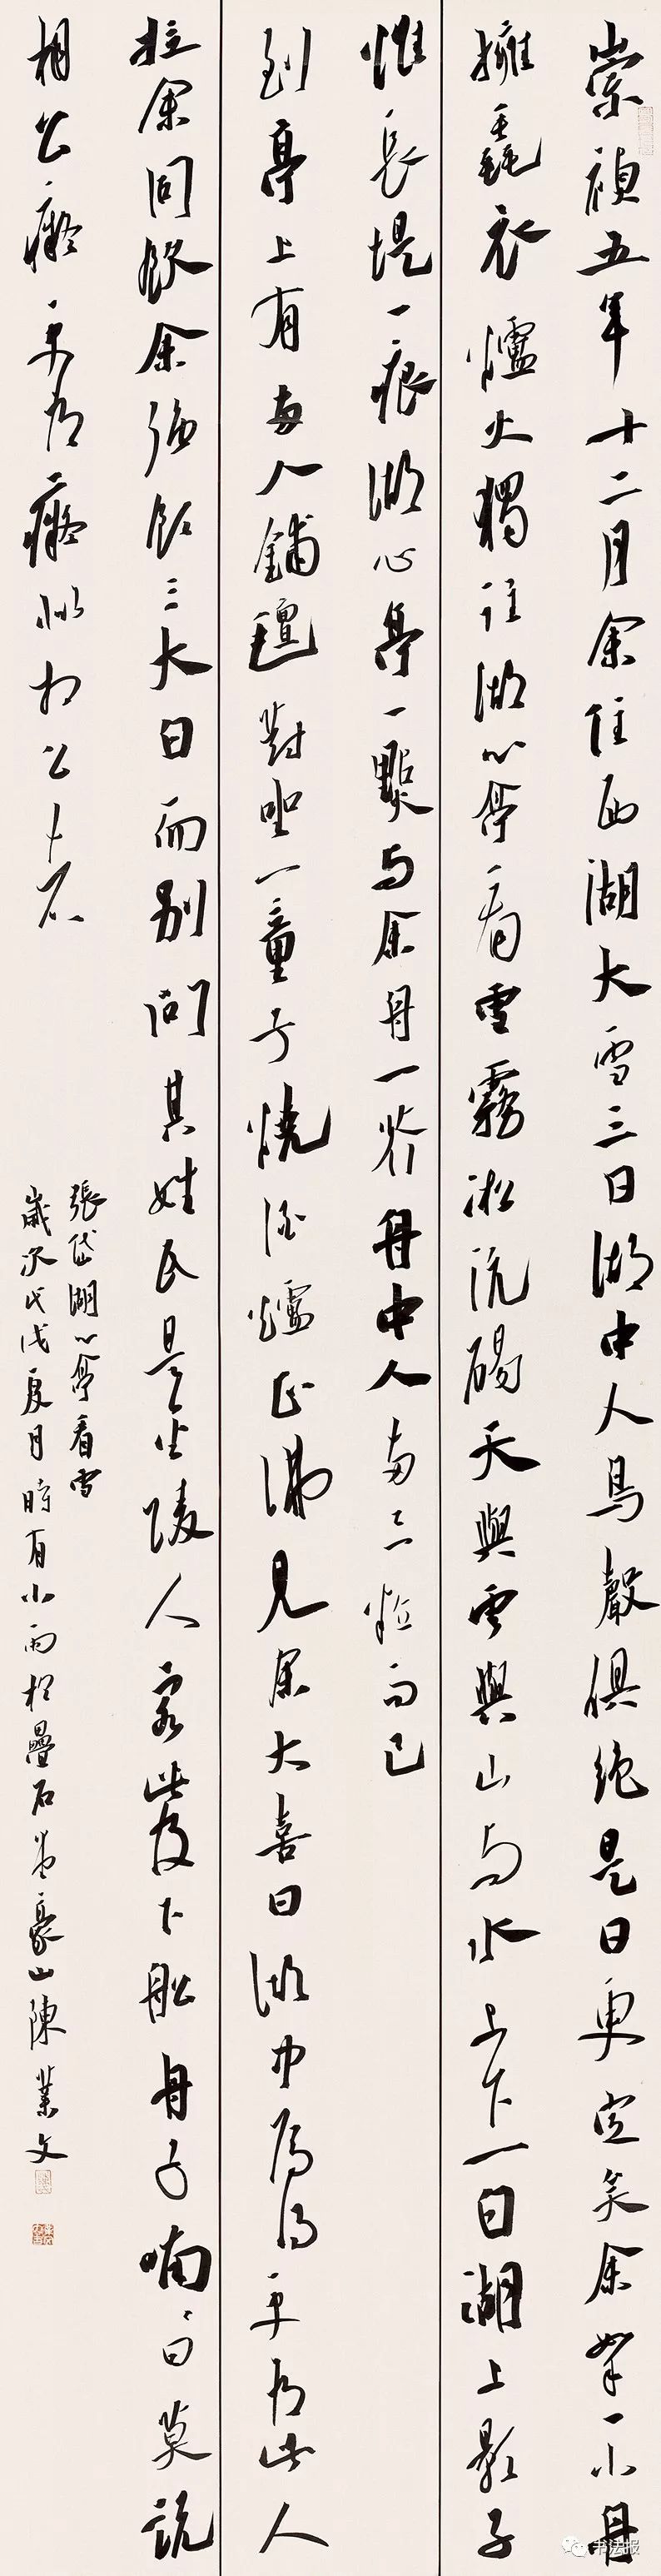 崇禎五年十二月余住西湖大雪三日湖中人鳥聲俱絕是日更定矣余拏一小舟
擁毳衣爐火獨往湖心亭看雪霧凇沆碭天與雲與山與水上下一白湖上影子
惟長堤一痕湖心亭一點與余舟一芥舟中人兩三粒而已
到亭上有兩人鋪氈對坐一童子燒酒爐正沸見余大喜曰湖中焉得更有此人
拉余同飲余強飲三大白而別問其姓氏是金陵人客此及下船舟子喃喃曰莫說
相公癡更有癡似相公者
張岱湖心亭看雪
歲次戊戌夏月時有小雨於疊石堂豪山陳業文
书法报